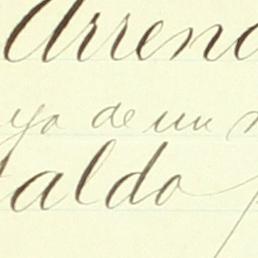 Arrend
ya de un
aldo